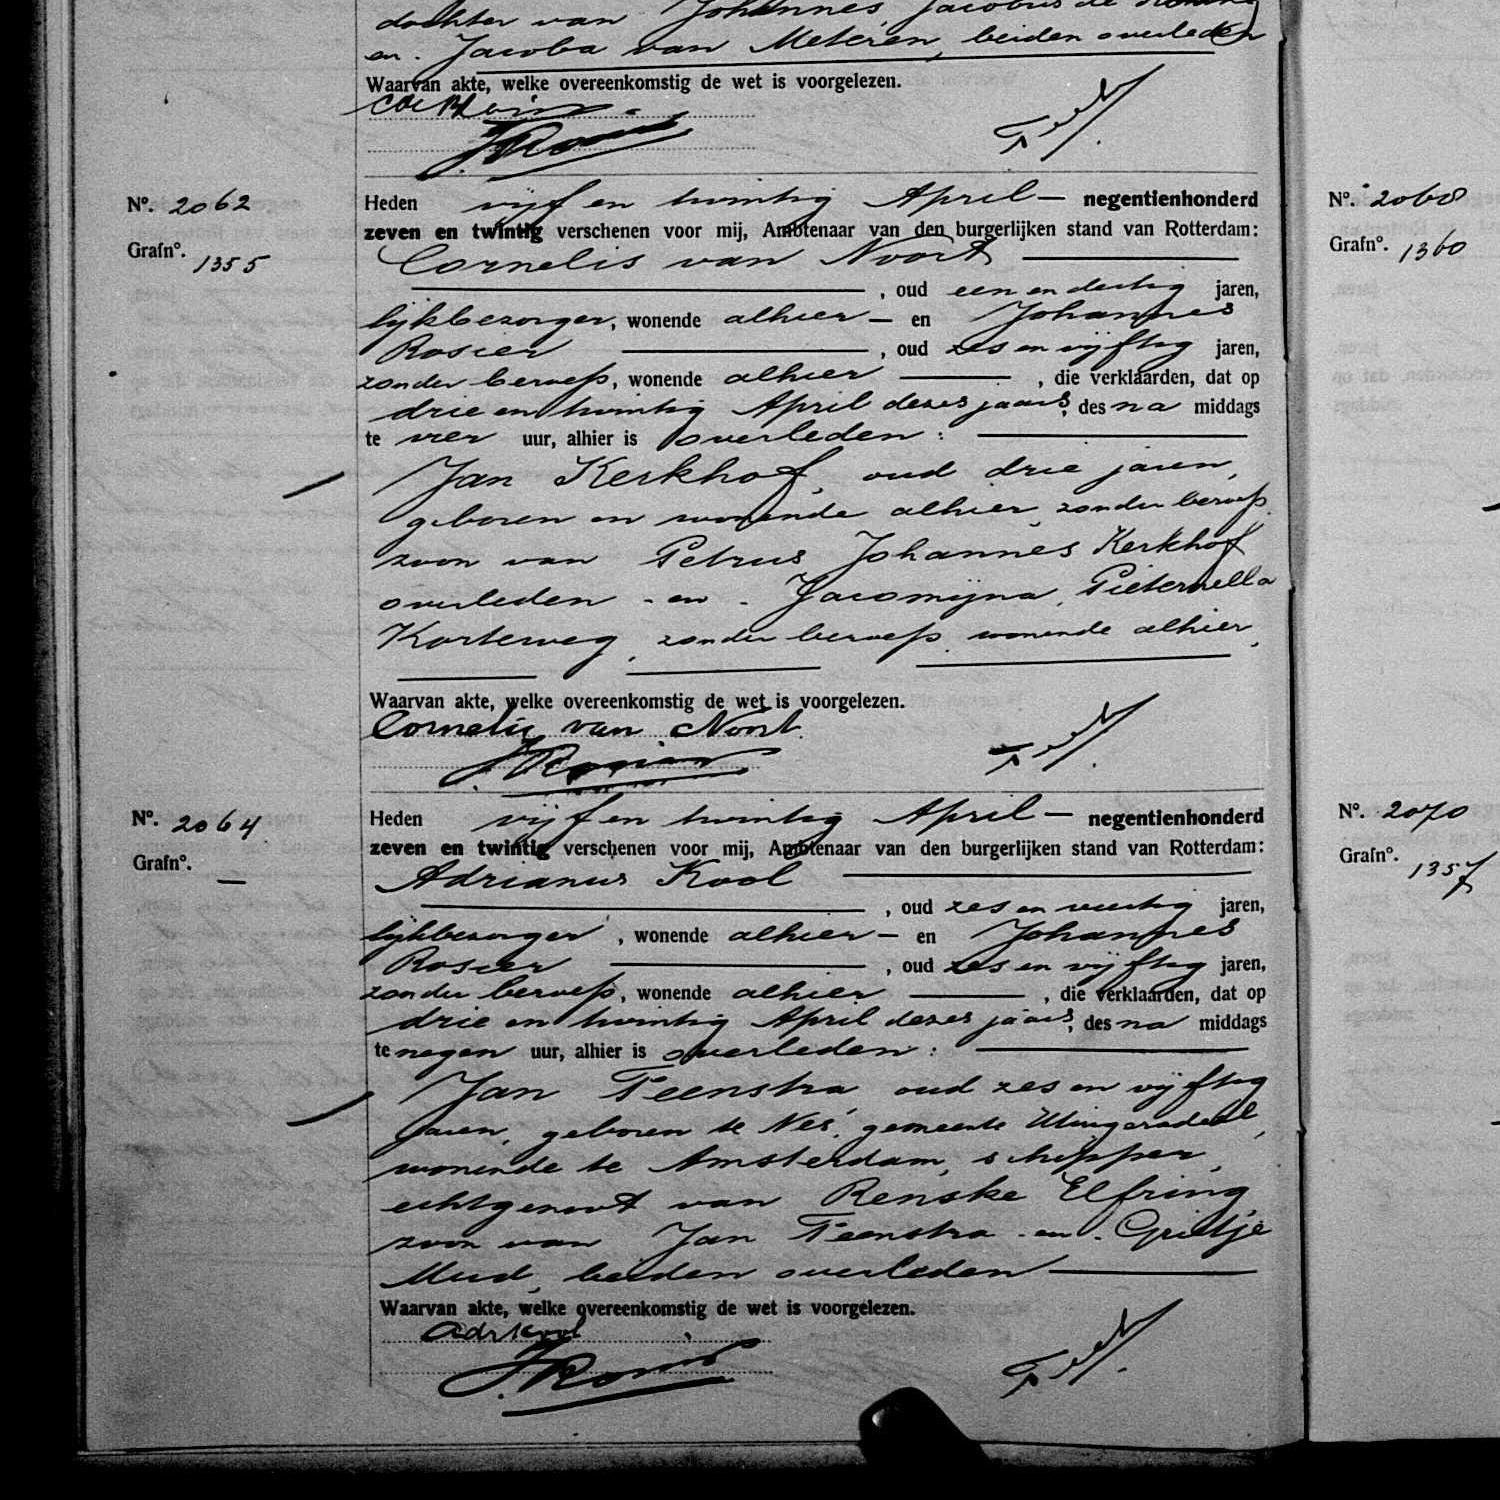 dochter van Johannes Jacobus de
en Jacoba van Meteren, beiden overleden
Waarvan akte, welke overeenkomstig de wet is voorgelezen.
No. 2062
Grafno. 1355
Heden vijf en twintig April — negentienhonderd
zeven en twintig verschenen voor mij, Ambtenaar van den burgerlijken stand van Rotterdam:
Cornelis van Noort
, oud een en dertig jaren,
lijkbezorger, wonende alhier — en Johannes
Rosier , oud zes en vijftig jaren,
zonder beroep, wonende alhier , die verklaarden, dat op
drie en twintig April dezes jaars, des na middags
te vier uur, alhier is overleden:
Jan Kerkhof, oud drie jaren,
geboren en wonende alhier, zonder beroep,
zoon van Petrus Johannes Kerkhof
overleden - en - Jacomijna Pieternella
Korteweg, zonder beroep, wonende alhier,
Waarvan akte, welke overeenkomstig de wet is voorgelezen.
Cornelis van Noort
J. Rosier
No. 2064
Grafno. —
Heden vijf en twintig April — negentienhonderd
zeven en twintig verschenen voor mij, Ambtenaar van den burgerlijken stand van Rotterdam:
Adrianus Kool
, oud zes en veertig jaren,
lijkbezorger, wonende alhier — en Johannes
Rosier , oud zes en vijftig jaren,
zonder beroep, wonende alhier , die verklaarden, dat op
drie en twintig April dezes jaars, des na middags
te negen uur, alhier is overleden:
Jan Feenstra oud zes en vijftig
jaren, geboren te Nes, gemeente Utingeradeel,
wonende te Amsterdam, schipper,
echtgenoot van Renske Elfring
zoon van Jan Feenstra - en - Grietje
Mud, beiden overleden
Waarvan akte, welke overeenkomstig de wet is voorgelezen.
Adr Kool
J. Rosier
No. 2068
Grafno. 1360
No. 2070
Grafno. 1357